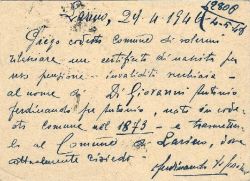 Lariano, 29.4.1948
4-5-48
Prego codesto Comune di volermi
rilasciare un certificato di nascita per
uso pensione - invalidità vecchiaia -
al nome di Di Giovanni Antonio
Ferdinando fu Antonio, nato in code
sto comune nel 1873 - e trasmetter
lo al Comune di Lariano, dove
attualmente risiedo.